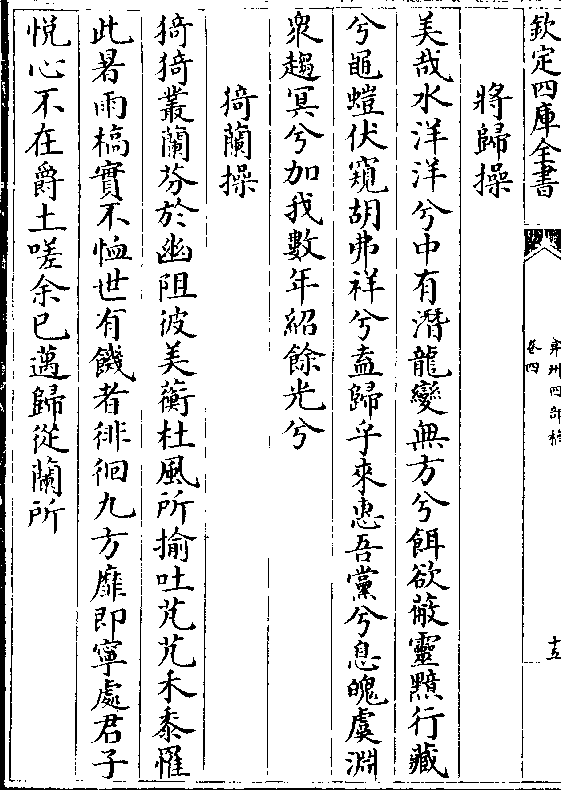 欽定四庫全書
弇州四部稿
卷四
十五
將歸操
美哉水洋洋兮中有潛龍變無方兮餌欲蔽靈黯行藏
兮黿螘伏窺胡弗祥兮盍歸乎來恵吾黨兮息魄虞淵
衆趨冥兮加我數年紹餘光兮
猗蘭操
猗猗叢蘭芬於幽阻彼美蘅杜風所揄吐芃芃禾黍罹
此暑雨槁實不恤世有饑者徘徊九方靡即寧處君子
悦心不在爵土嗟余已邁歸從蘭所